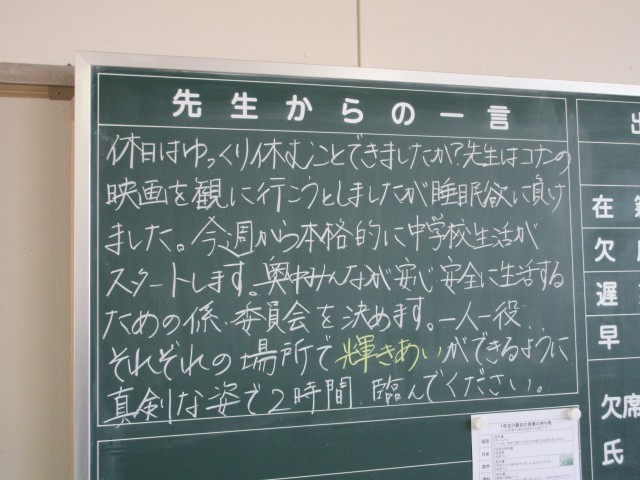 先生からの一言
休日はゆっくり休むことできましたか?先生はコナンの
映画を観に行こうとしましたが睡眠欲に負け
ました。今週から本格的に中学校生活が
スタートします。奥中みんなが安心安全に生活する
ための係、委員会を決めます。一人一役、
それぞれの場所で輝きあいができるように
真剣な姿で2時間、臨んでください。
出
在籍
欠席
遅
早
欠席
氏